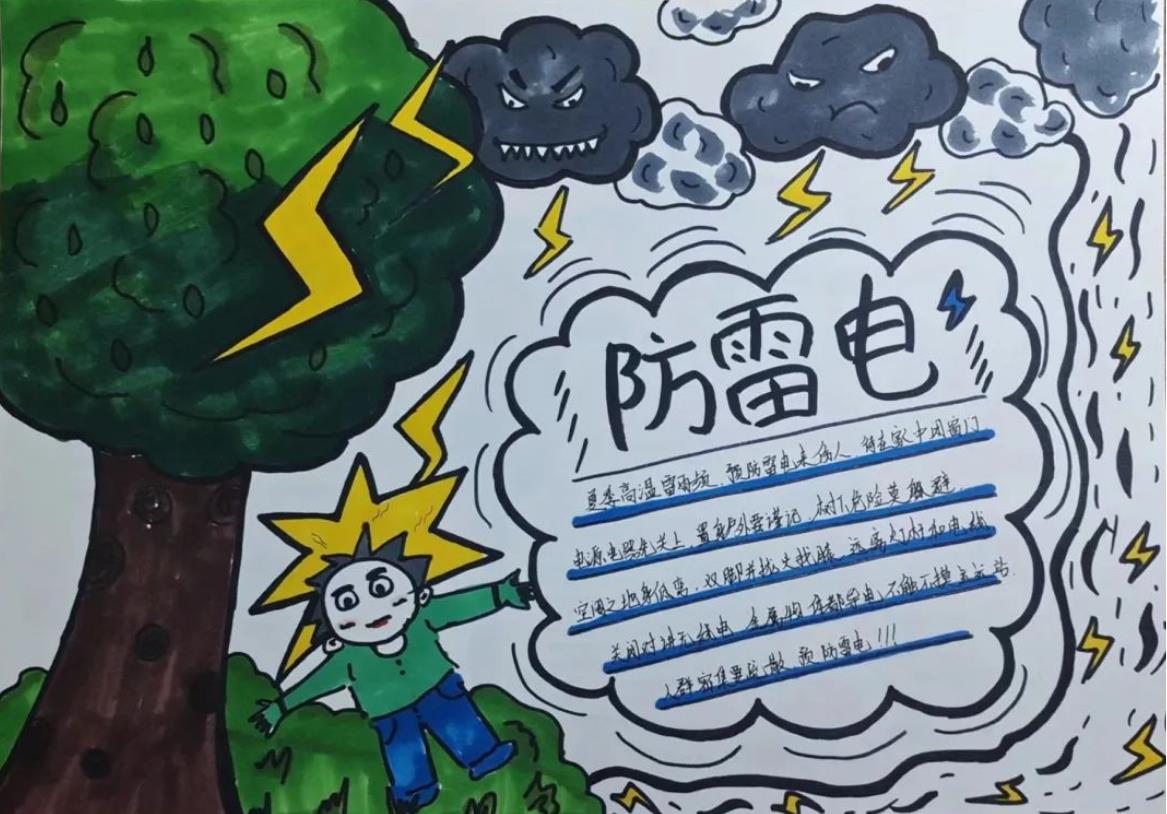 防雷电
夏季高温雷雨频,预防雷电来伤人 待在家中闭窗门
电源电器先关上,置身户外要谨记,树下危险莫躲避.
空旷之地身低,双脚并拢头找膝,远离灯杆和电线
关闭对讲无线电 金属物件都导电,不触不摸远站.
人群密集要疏散 预防雷电!!!